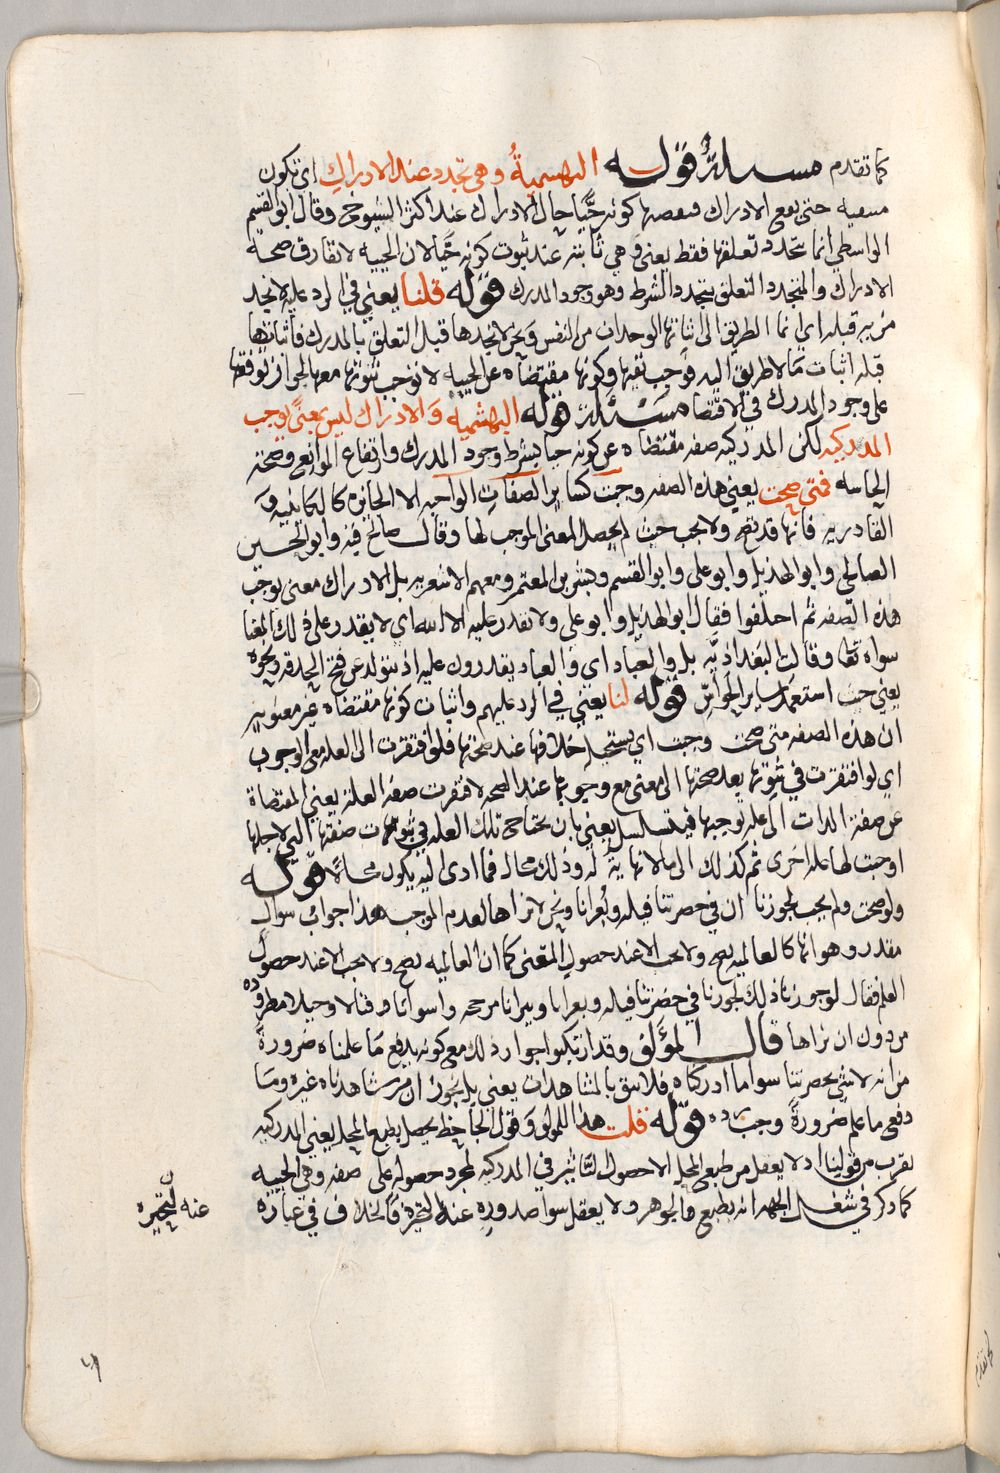 كما تقدم مسئلة قوله البهشمية وهي تجدد عند الادراك اي تكون
حتى يقع الادراك كونه حيا حال الادراك عند اكثر الشيوخ وقال ابو القسم
الواسطي انما يتجدد تعلقها فقط يعني وهي ثابته عند ثبوت كونه حيا لان الحييه لا تفارق صحة
الادراك والمتجدد التعلق بتجدد الشرط وهو وجود المدرك قوله قلنا يعني في الرد عليه لا نجد
مزيه قبله اي انما الطريق الى اثباتها الوجدان من النفس ونحن لا نجدها قبل التعلق بالمدرك فاثباتها
قبله اثبات ما لا طريق اليه فوجب نفيها وكونها مقتضاه عن الحييه لا توجب ثبوتها معها لجواز توقفها
على وجود المدرك في الاقتضا مسئلة قوله البهشميه والادراك ليس بمعنى يوجب
المدركيه لكن المدركيه صفه مقتضاه عن كونه حيا بشرط وجود المدرك وارتفاع الموانع وصحة
الحاسه فمتى صحت يعني هذه الصفه وجبت كساير الصفات الواجبه لا الجايزه كالكاينيه و
القادريه فانها قد تصح ولا تجب حيث لم يحصل المعنى الموجب لها وقال صالح قبه وابو الحسين
الصالحي وابو الهذيل وابو علي وابو القسم وبشر بن المعتمر ومعهم الاشعريه بل الادراك معنى يوجب
هذه الصفه ثم اختلفوا فقال ابو الهذيل وابو علي ولا يقدر عليه الا الله اي لا يقدر على ذلك المعنا
سواه تعا وقالت البغداديه بل والعباد اي والعباد يقدرون عليه اذ يتولد عن فتح الحدقه ونحوه
يعني حيث استعمل ساير الحواس قوله لنا يعني في الرد عليهم واثبات كونها مقتضاه غير معنويه
ان هذه الصفه متى صحت وجبت اي يستحيل خلافها عند صحتها فلو افتقرت الى العله مع الوجوب
اي لو افتقرت في ثبوتها بعد صحتها الى معنى مع وجوبها عند الصحه لافتقرت صفة العلة يعني المقتضاة
عن صفة الذات الى عله توجبها فيتسلسل يعني بان يحتاج تلك العله في ثبوت صفتها التي لاجلها
اوجبت لها عله اخرى ثم كذلك الى ما لا نهاية له وذلك محال فما ادى اليه يكون محالا قوله
ولو صحت ولم يجب لجوزنا ان في حضرتنا فيله وبعرانا ونحن لا نراها لعدم الموجب هذا جواب سوال
مقدر وهو انها كالعالميه تصح ولا تجب الا عند حصول المعنى كما ان العالميه تصح ولا تجب الا عند حصول
العلم فقال لو جوزنا ذلك لجوزنا في حضرتنا فيله وبعرانا ونيرانا واسواتا وقتالا وخيلا مطروده
من دون ان نراها قال المؤلف وقد ارتكبوا جواز ذلك مع كونه يدفع ما علمناه ضرورة
من انه لا شي بحضرتنا سوا ما ادركناه فلا نثق بالمشاهدات يعني بل يجوز ان من شاهدناه غيره وما
دفع ما علم ضرورة وجب رده قوله قلت هذا للمؤلف وقول الجاحظ يحصل بطبع المحل يعني المدركيه
يقرب من قولنا اذ لا يعقل من طبع المحل الا حصول التاثير في المدركيه لمجرد حصوله على صفه وهي الحييه
كما ذكر في شغل الجهه انه بطبع الجوهر ولا يعقل سوا صدوره عند التحيز فالخلاف في عباره
عنه لتحيزه